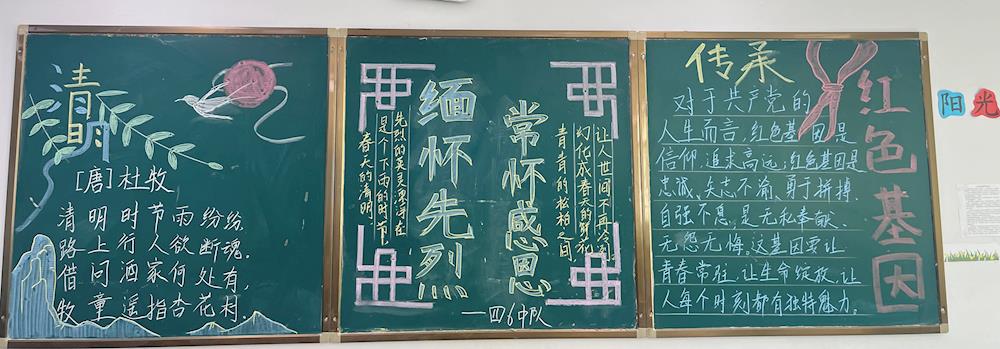 清明
[唐]杜牧
清明时节雨纷纷
路上行人欲断魂.
借问酒家何处有,
牧童遥指杏花村.
缅怀先烈
先烈的英灵漂浮在
是个下雨的时节
春天的清明
常怀感恩
让人世间不再冷
幻化成春天的鲜花
青青的松柏之间
一四6中队
传承
红色基因
对于共产党的
人生而言,红色基因是
信仰,追求高远;红色基因是
忠诚、矢志不渝、勇于拼搏、
自强不息,是无私奉献、
无怨无悔。这基因要让
青春常驻,让生命绽放,让
人每个时刻都有独特魅力。
阳光